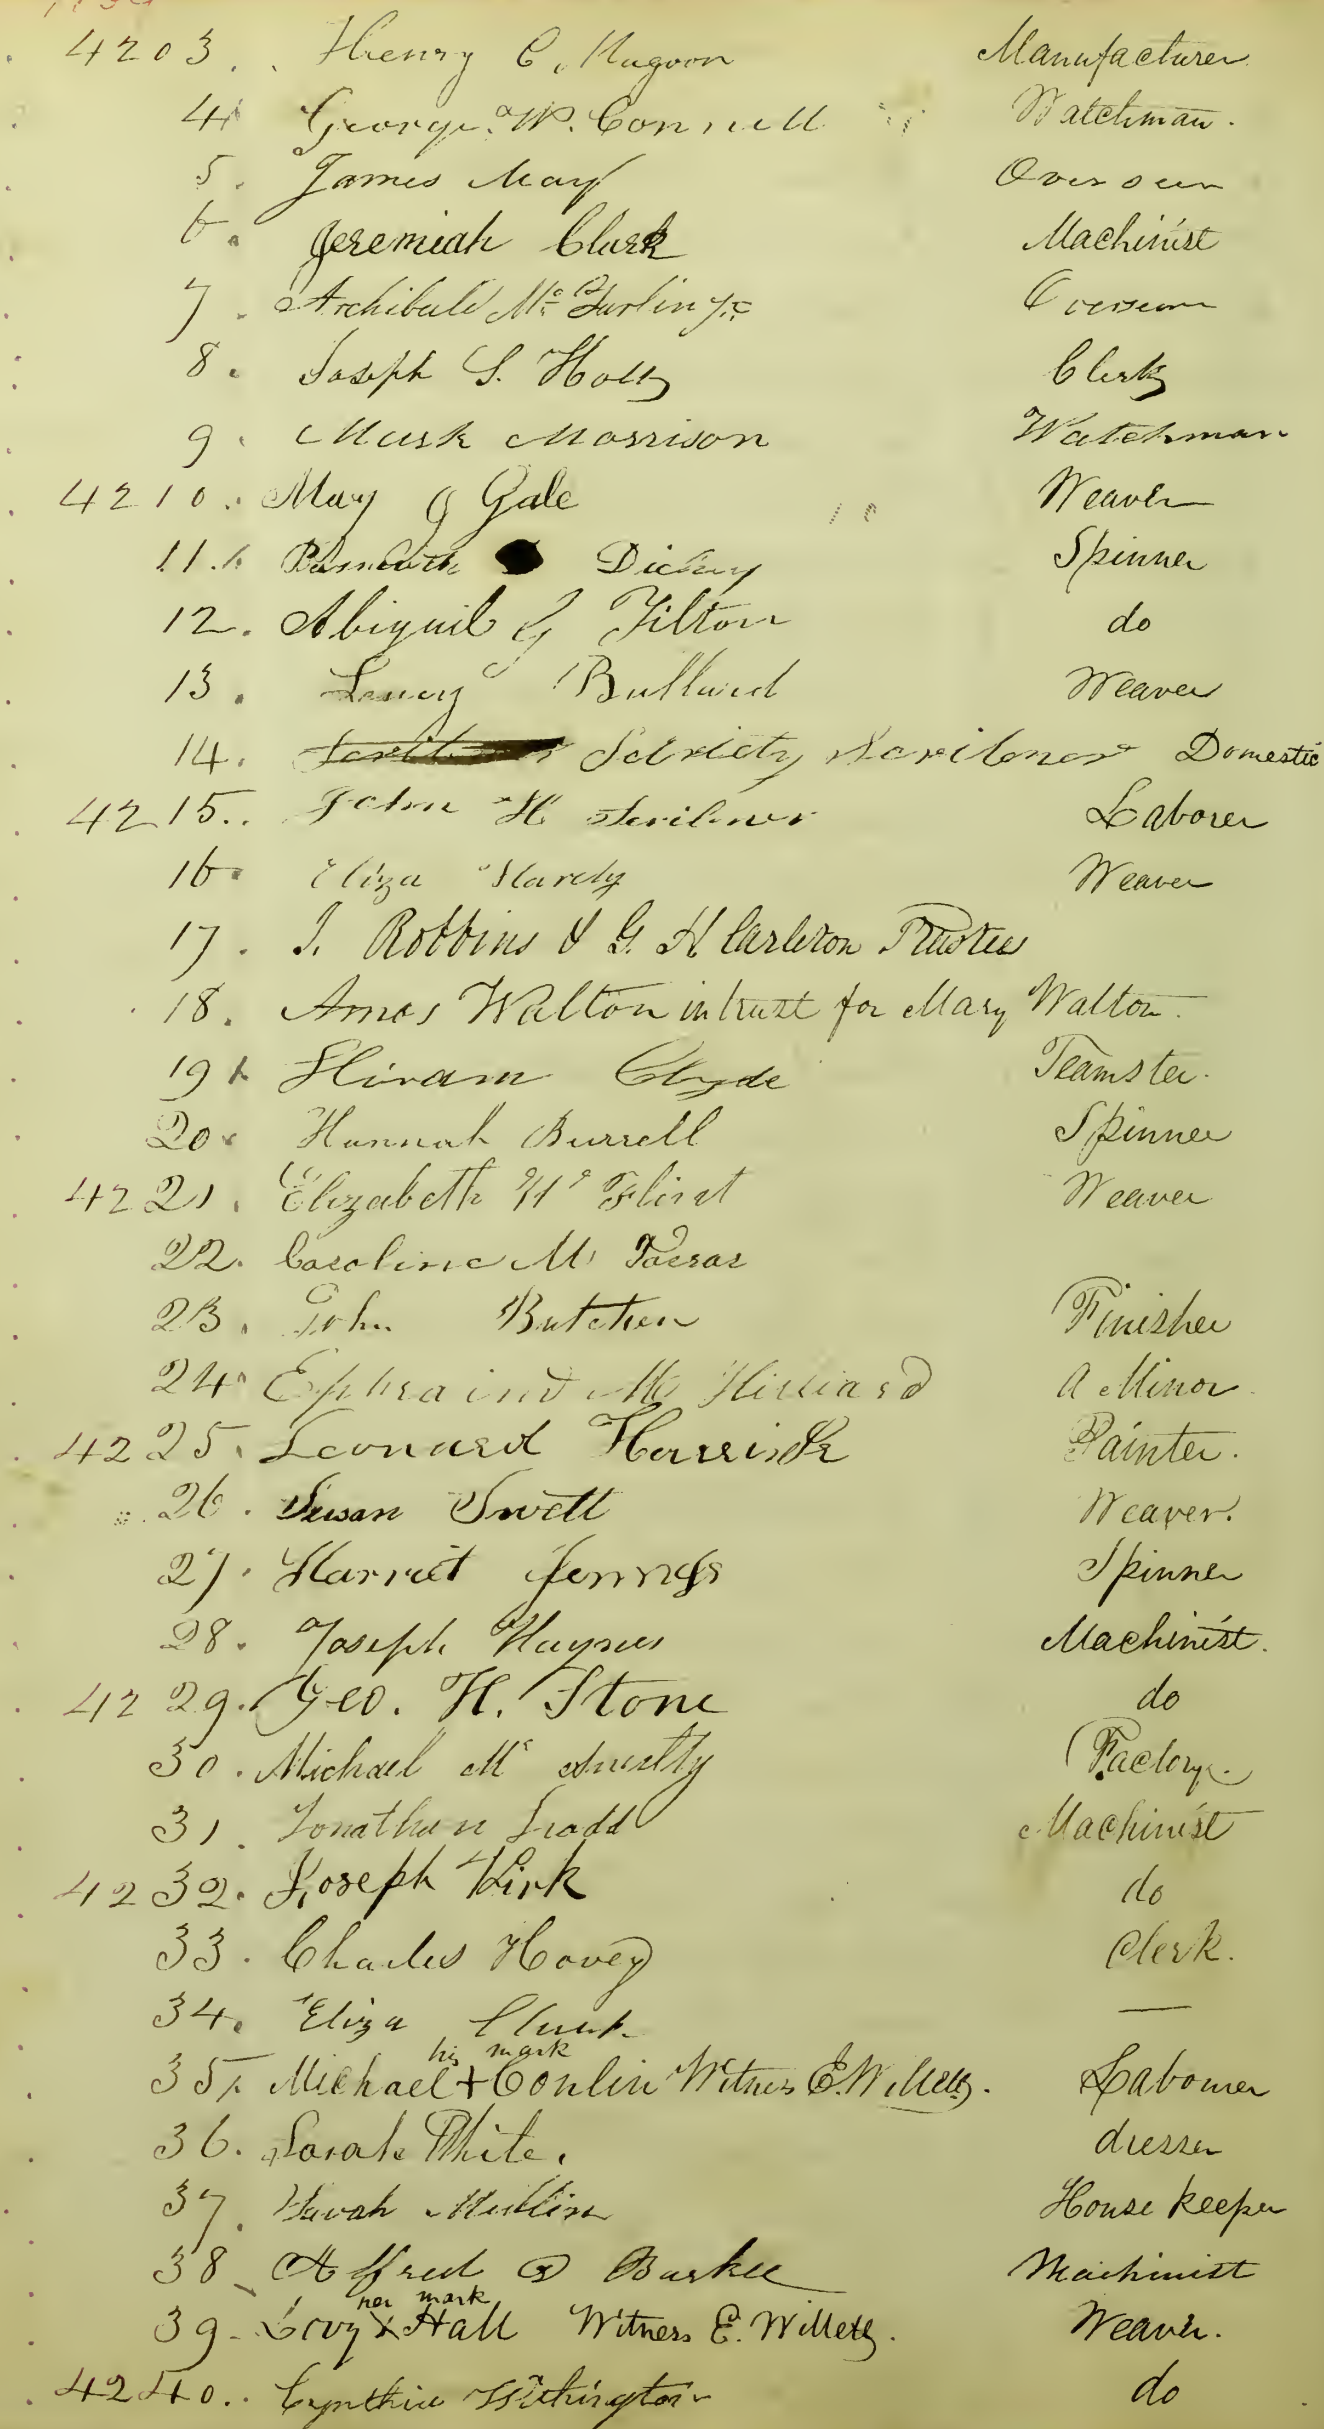 4203. Henry C. Magoon Manufacturer
4 George W. Connell Watchman.
5. James May Overseer
6. Jeremiah Clark Machinist
7. Archibald Mc Farlin Jr Overseer
8. Joseph S. Holt Clerk
9. Mark Morrison Watchman
4210. Mary J Gale Weaver
11. Dickey Spinner
12. Abigail G Tilton do
13. Bullard Weaver
14. Scribner Domestic
4215.. John H Scribner Laborer
16. Eliza Hardy Weaver
17. J. Robbins & G. H Carleton Trustees
18. Amos Walton in trust for Mary Walton.
19 Hiram Clyde Teamster.
20. Hannah Burrell Spinner
4221. Elizabeth H Flint Weaver
22. Caroline M.
23. John Butcher Finisher
24 Ephraim M Hilliard A Minor
4225. Leonard Painter.
26. Susan Swett Weaver.
27. Harriet Spinner
28. Joseph Haynes Machinist.
4229. Geo. H. Stone do
30. Michael Mc Factory.
31. Jonathan Ladd Machinist
4232. Joseph Kirk do
33. Charles Hovey Clerk.
34. Eliza —
his mark
35. Michael + Conlin Witness E. Willetts. Labourer
36. Sarah White. dresser
37. Sarah House keeper
38 Alfred Machinist
her mark
39- x Hall Witness E. Willetts. Weaver.
4240.. Cynthia Withington do